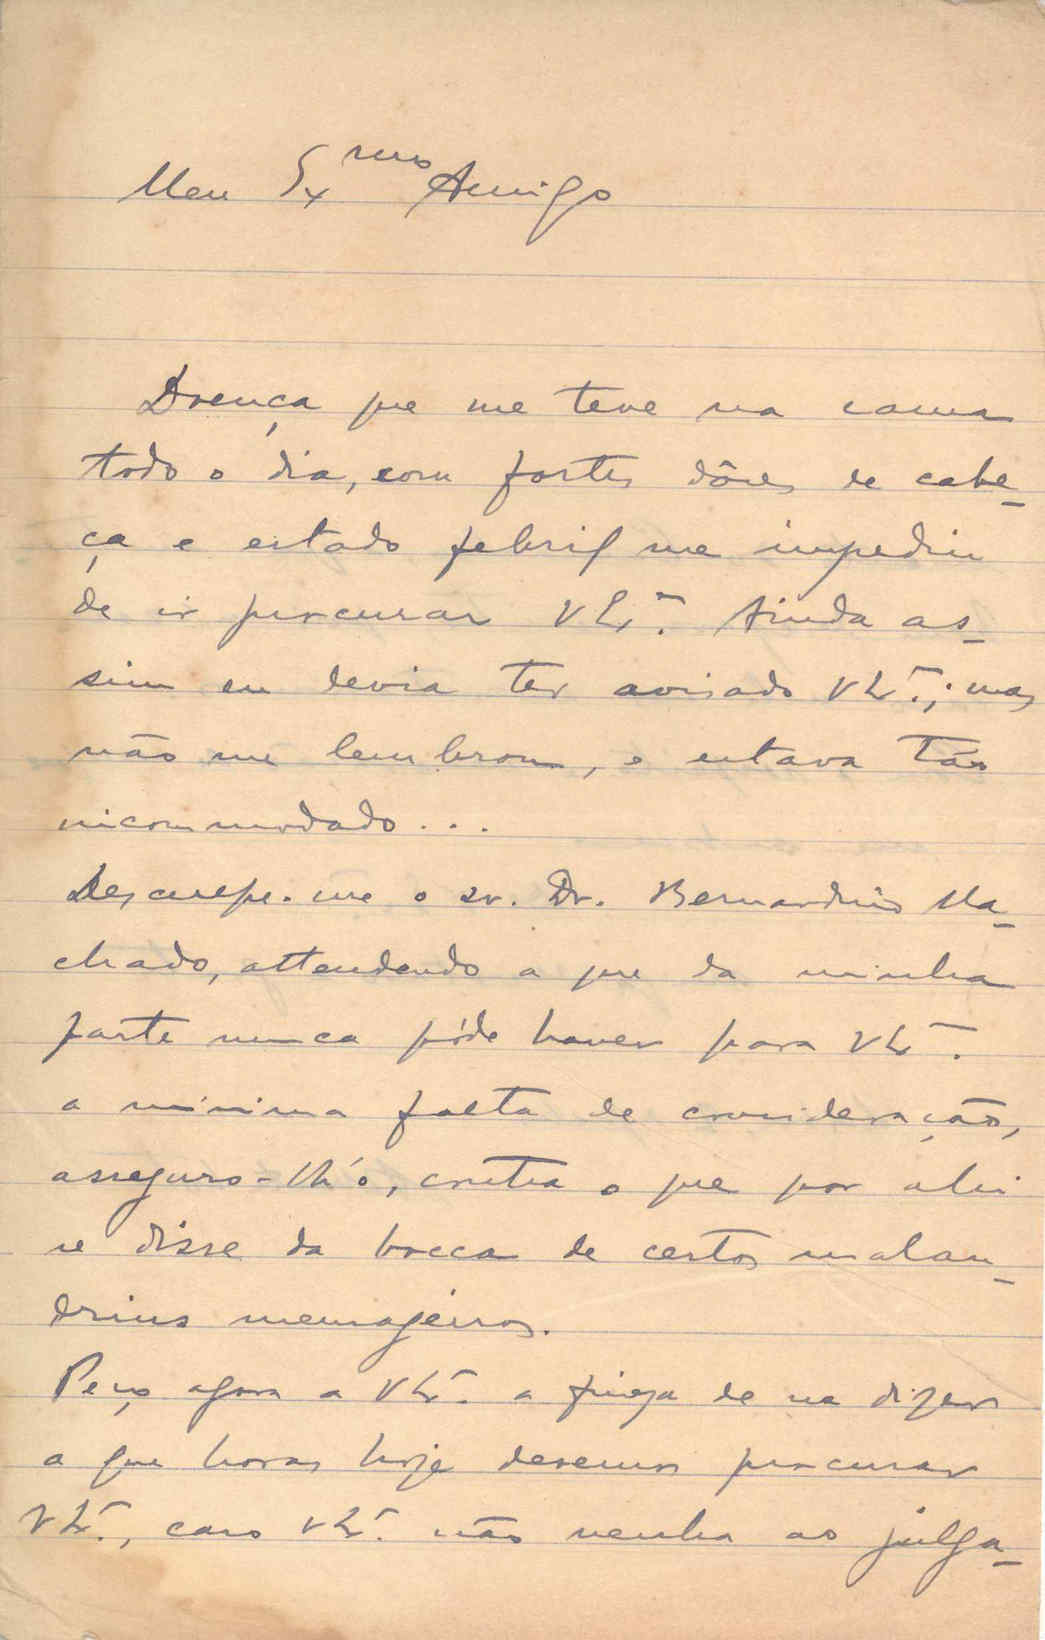 Meu Exmo Amigo
Doença que me teve na cama
todo o dia, com fortes dôres de cabe-
ça e estado febril me impediu
de ir procurar V Exª. Ainda as-
sim eu devia ter avisado V Exª.; mas
não me lembrou, e estava tão
incommodado...
Desculpe-me o sr. Dr. Bernardino Ma-
chado, attendendo a que da minha
parte nunca póde haver para V Exª.
a minima falta de consideração,
asseguro-lh'o, contra o que por ahi
se disse da bocca de certos malan-
drins mensageiros.
Peço agora a V Exª. a fineza de me dizer
a que horas hoje devemos procurar
V Exª., caso V Exª. não venha ao julga-